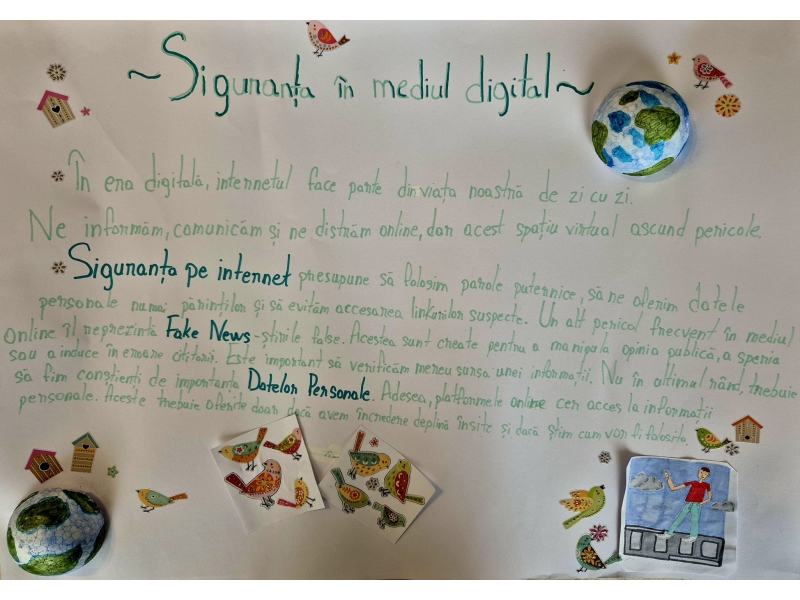 ~Siguranța în mediul digital~
În era digitală, internetul face parte din viața noastră de zi cu zi.
Ne informăm, comunicăm și ne distrăm online, dar acest spațiu virtual ascund pericole.
Siguranța pe internet presupune să folosim parole puternice, să ne oferim datele
personale numai părinților și să evităm accesarea linkurilor suspecte. Un alt pericol frecvent în mediul
online îl reprezintă Fake News - știrile false. Acestea sunt create pentru a manipula opinia publică, a speria
sau a induce în eroare cititorii. Este important să verificăm mereu sursa unei informații. Nu în ultimul rând, trebuie
să fim conștienți de importanța Datelor Personale. Adesea, platformele online cer acces la informații
personale. Aceste trebuie oferite doar dacă avem încredere deplină în site și dacă știm cum vor fi folosite.